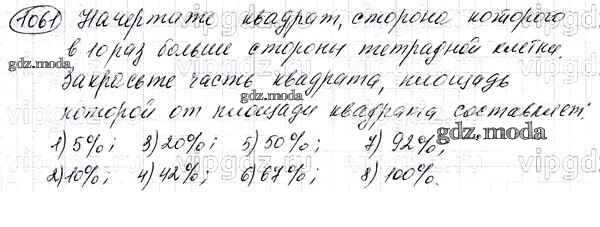 1061 Начертите квадрат, сторона которого
в 10 раз больше стороны тетрадной клетки.
gdz.moda
Закрасьте часть квадрата, площадь
gdz.moda
которой от площади квадрата составляет:
gdz.moda
1) 5%; 3) 20%; 5) 50%; 7) 92%;
2) 10%; 4) 42%; 6) 67%; 8) 100%.